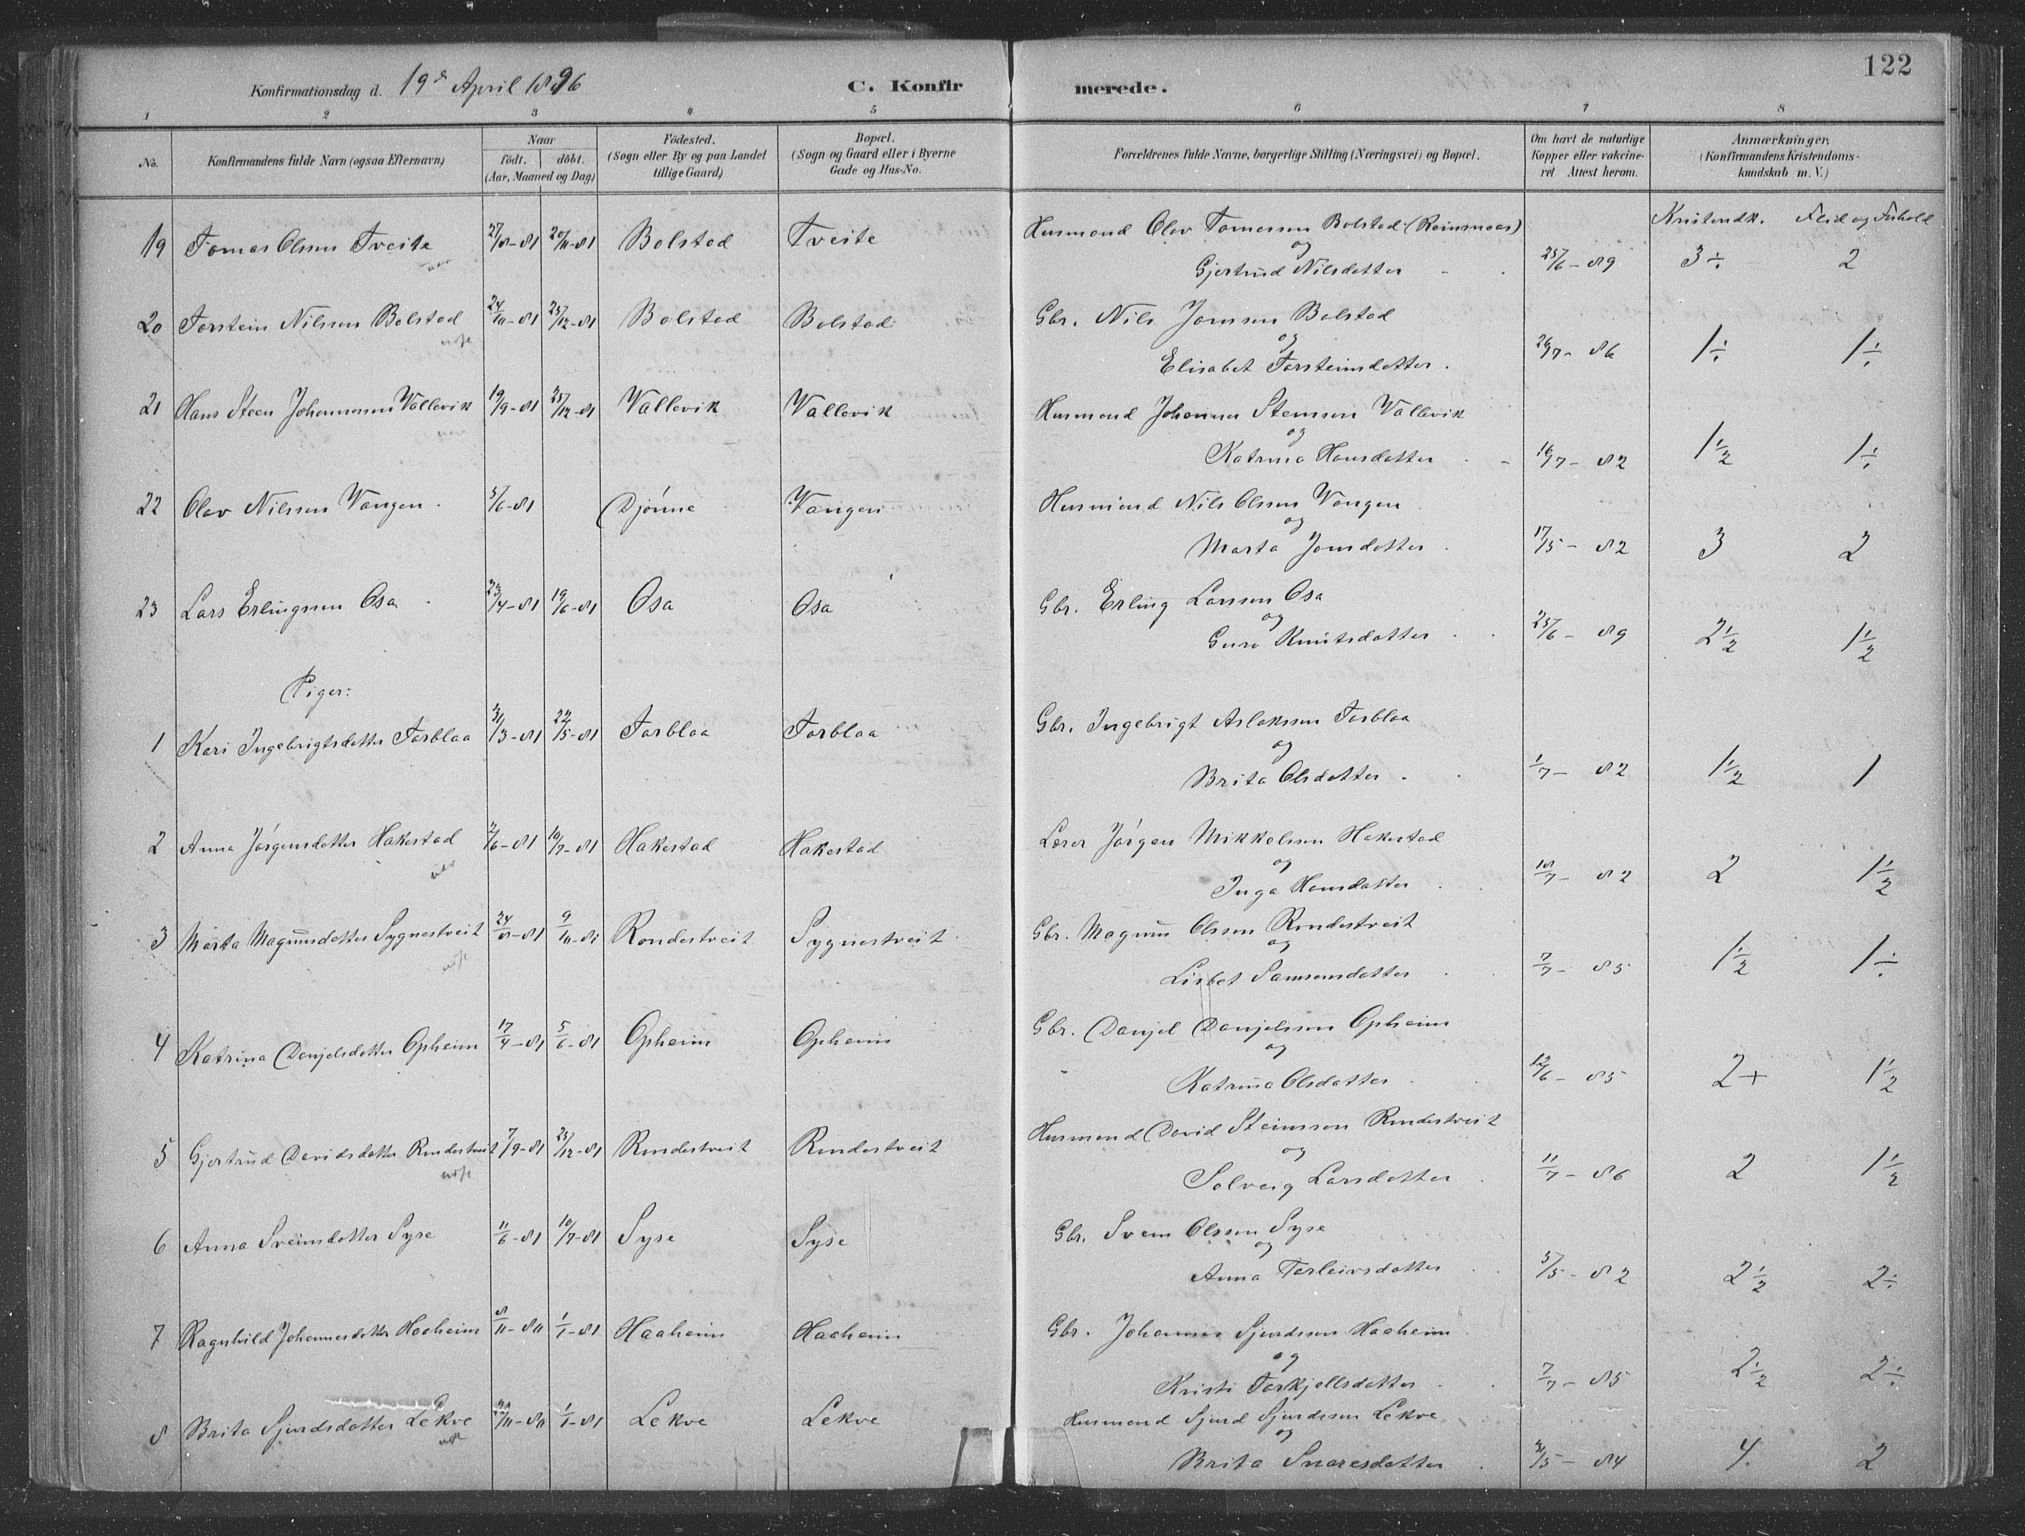 122
Konfirmationsdag d. 19de April 1896 C. Konfir merede.
1 2 3 4 5 6 7 8
No. Konfirmandens fulde Navn (ogsaa Efternavn) Naar født. døbt. (Aar, Maaned og Dag) Fødested. (Sogn eller By og paa Landet tillige Gaard) Bopæl. (Sogn og Gaard eller i Byerne Gade og Hus-No. Forældrenes fulde Navne, borgerlige Stilling (Næringsvei) og Bopæl. Om havt de naturlige Kopper eller vakcineret Attest herom. Anmærkninger. (Konfirmandens Kristendomskundskab m. V.)
Kristendk. Flid og Forhold
19 Tomas Olsen Tveite 27/8-81 20/11-81 Bolstad Tveite Husmand Olav Tomassen Bolstad (Reinsnaas)
og
Gjertrud Nilsdatter 25/6-89 3÷ 2
20 Torstein Nilssen Bolstad 24/10-81 25/12-81 Bolstad Bolstad Gbr. Nils Jonssen Bolstad
og
Elisabet Torsteinsdatter. 26/7-86 1÷ 1÷
21 Hans Steen Johannessen Vallevik 19/9-81 25/12-81 Vallevik Vallevik Husmand Johannes Stensen Vallevik
og
Katrina Hansdatter 16/7-82 1½ 1÷
22 Olav Nilssen Vangen. 5/6-81 Djønne Vangen Husmand Nils Olssen Vangen
og
Marta Jonsdatter. 17/5-82 3 2
23 Lars Erlingssen Osa 23/4-81 19/6-81 Osa Osa Gbr. Erling Larssen Osa
og
Guro Knutsdatter 25/6-89 2½ 1½
Piger:
1 Kari Ingebrigtsdatter Torblaa 31/3-81 22/5-81 Torblaa Torblaa Gbr. Ingebrigt Aslaksen Torblaa
og
Brita Olsdatter. 1/7-82 1½ 1
2 Anna Jørgensdatter Hakestad 2/6-81 10/7-81 Hakestad Hakestad Lærer Jørgen Mikkelssen Hakestad
og
Inga Hansdatter 18/7-82 2 1½
3 Marta Magnusdatter Sygnestveit 24/8-81 9/10-81 Rondestveit Sygnestveit Gbr. Magnus Olssen Rondestveit
og
Lisbet Samsonsdatter 7/7-85 1½ 1÷
4 Katrina Danjelsdatter Opheim 17/4-81 5/6-81 Opheim Opheim Gbr. Danjel Danjelssen Opheim
og
Katrina Olsdatter 12/6-85 2+ 1½
5 Gjertrud Davidsdatter Rondestveit 7/9-81 25/12-81 Rondestveit Rondestveit Husmand David Steinssen Rondestveit
og
Solveig Larsdatter 11/7-86 2 1½
6 Anna Sveinsdatter Syse 11/6-81 10/7-81 Syse Syse Gbr. Svein Olssen Syse
og
Anna Torleivsdatter 5/5-82 2½ 2÷
7 Ragnhild Johannesdatter Haaheim 8/11-80 1/1-81 Haaheim Haaheim Gbr. Johannes Sjurdssen Haaheim
og
Kristi Torkjellsdatter 7/7-85 2½ 2÷
8 Brita Sjurdsdatter Lekve 1/1-81 Lekve Lekve Husmand Sjurd Sjurdssen Lekve
og
Brita Snaresdatter 4. 2